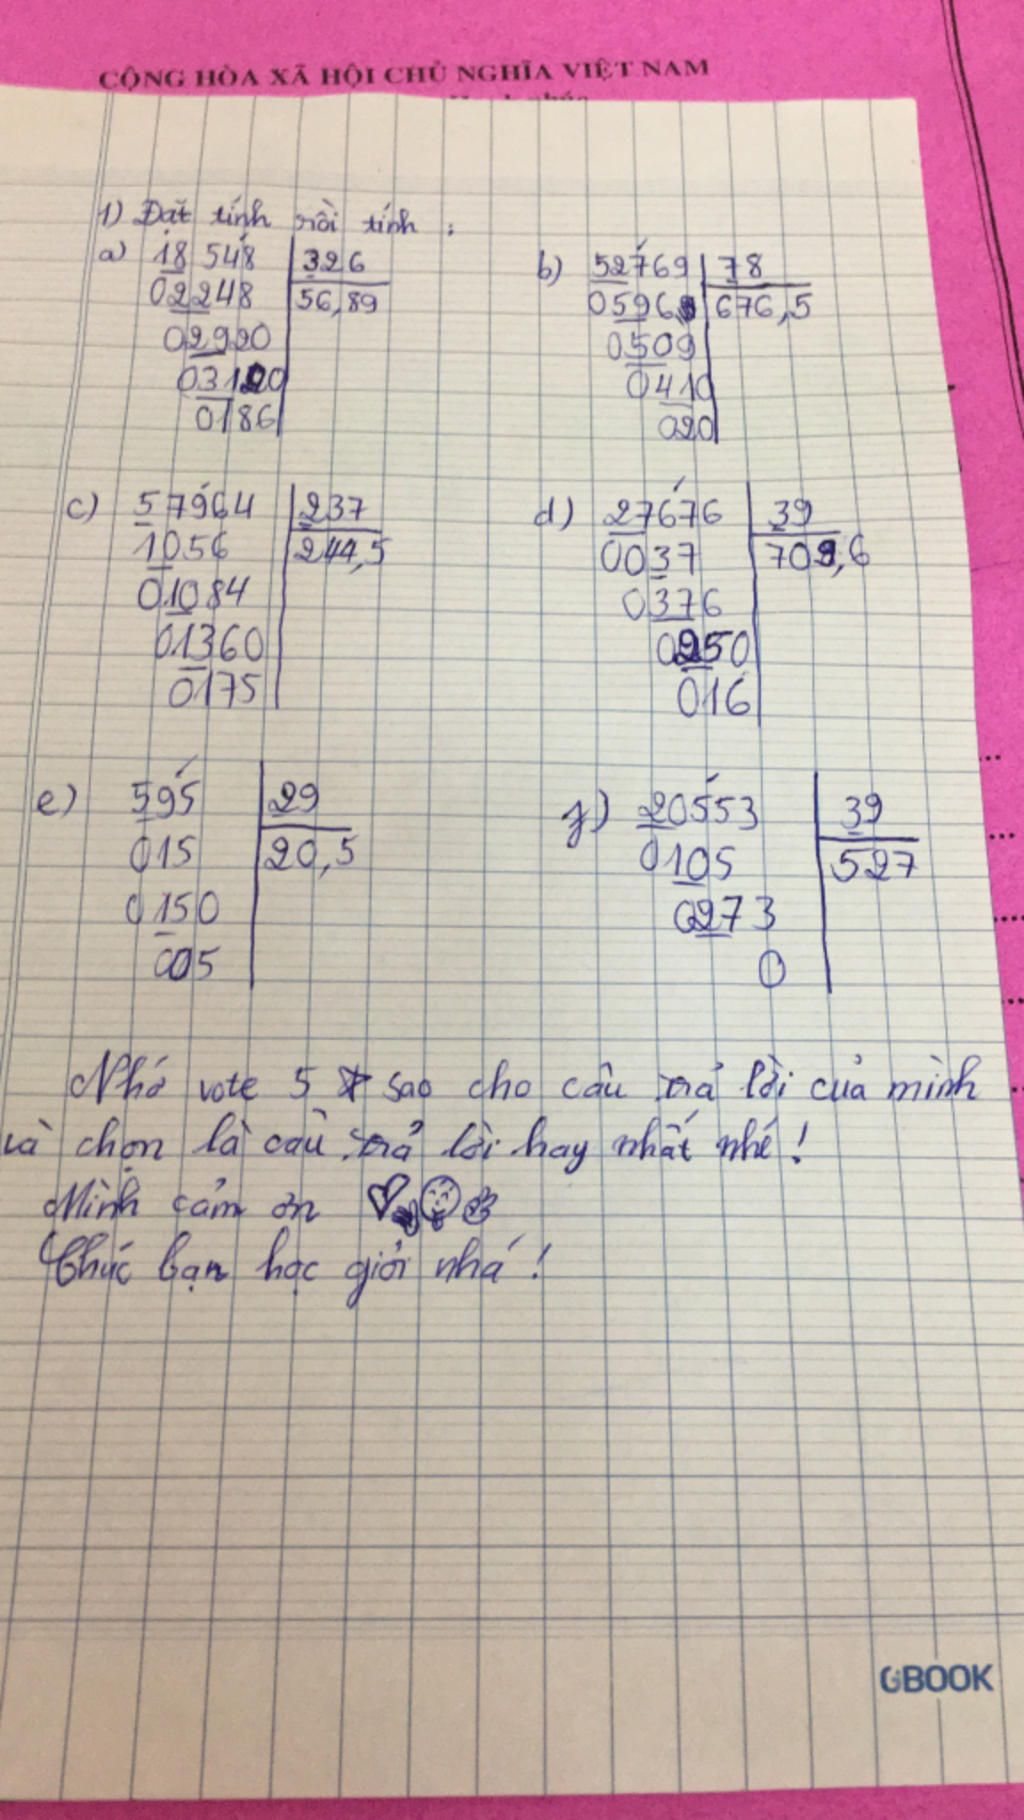 CỘNG HÒA XÃ HỘI CHỦ NGHĨA VIỆT NAM
1) Đặt tính rồi tính :
a) 18 548 326
02248 56,89
02920
03120
0186
b) 52769 78
0596 676,5
0509
0410
020
c) 57964 237
1056 244,5
01084
01360
0175
d) 27676 39
0037 709,6
0376
0250
016
e) 595 29
015 20,5
0150
005
f) 20553 39
0105 527
0273
0
Nhớ vote 5 sao cho câu trả lời của mình
và chọn là câu trả lời hay nhất nhé !
Mình cảm ơn
Chúc bạn học giỏi nhá !
GBOOK